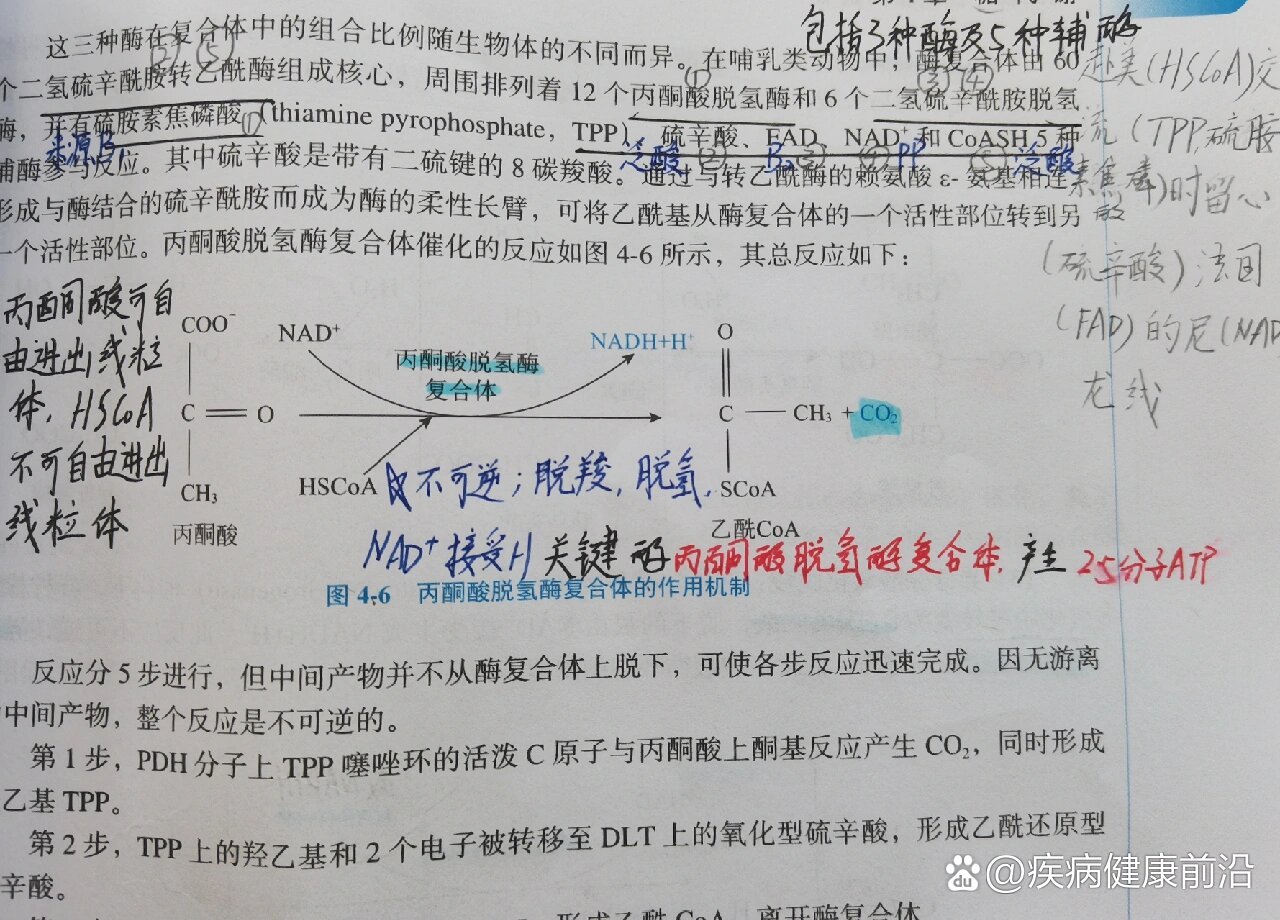 包括3种酶及5种辅酶
这三种酶在复合体中的组合比例随生物体的不同而异。在哺乳类动物中，酶复合体由 60
个二氢硫辛酰胺转乙酰酶组成核心，周围排列着 12 个丙酮酸脱氢酶和 6 个二氢硫辛酰胺脱氢
酶，并有硫胺素焦磷酸（thiamine pyrophosphate，TPP）、硫辛酸、FAD、NAD⁺和 CoASH 5 种
泛酸 ② B₂ ③ ④ PP ⑤ 泛酸
辅酶参与反应。其中硫辛酸是带有二硫键的 8 碳羧酸。通过与转乙酰酶的赖氨酸 ε- 氨基相连
形成与酶结合的硫辛酰胺而成为酶的柔性长臂，可将乙酰基从酶复合体的一个活性部位转到另
一个活性部位。丙酮酸脱氢酶复合体催化的反应如图 4-6 所示，其总反应如下：
赴美(HSCoA)交
流(TPP,硫胺
素焦磷酸)时留心
(硫辛酸)法国
(FAD)的尼(NAD
龙线
丙酮酸可自
由进出线粒
体，HSCoA
不可自由进出
线粒体
COO⁻
C
O
CH₃
丙酮酸
NAD⁺
NADH+H⁺
丙酮酸脱氢酶
复合体
HSCoA
O
C
CH₃ + CO₂
SCoA
乙酰CoA
不可逆；脱羧，脱氢，
NAD⁺接受H 关键酶 丙酮酸脱氢酶复合体，产生 2.5分子ATP
图 4-6 丙酮酸脱氢酶复合体的作用机制
反应分 5 步进行，但中间产物并不从酶复合体上脱下，可使各步反应迅速完成。因无游离
中间产物，整个反应是不可逆的。
第 1 步，PDH 分子上 TPP 噻唑环的活泼 C 原子与丙酮酸上酮基反应产生 CO₂，同时形成
乙基 TPP。
第 2 步，TPP 上的羟乙基和 2 个电子被转移至 DLT 上的氧化型硫辛酸，形成乙酰还原型
辛酸。
形成乙酰 CoA，离开酶复合体
Bai du @疾病健康前沿